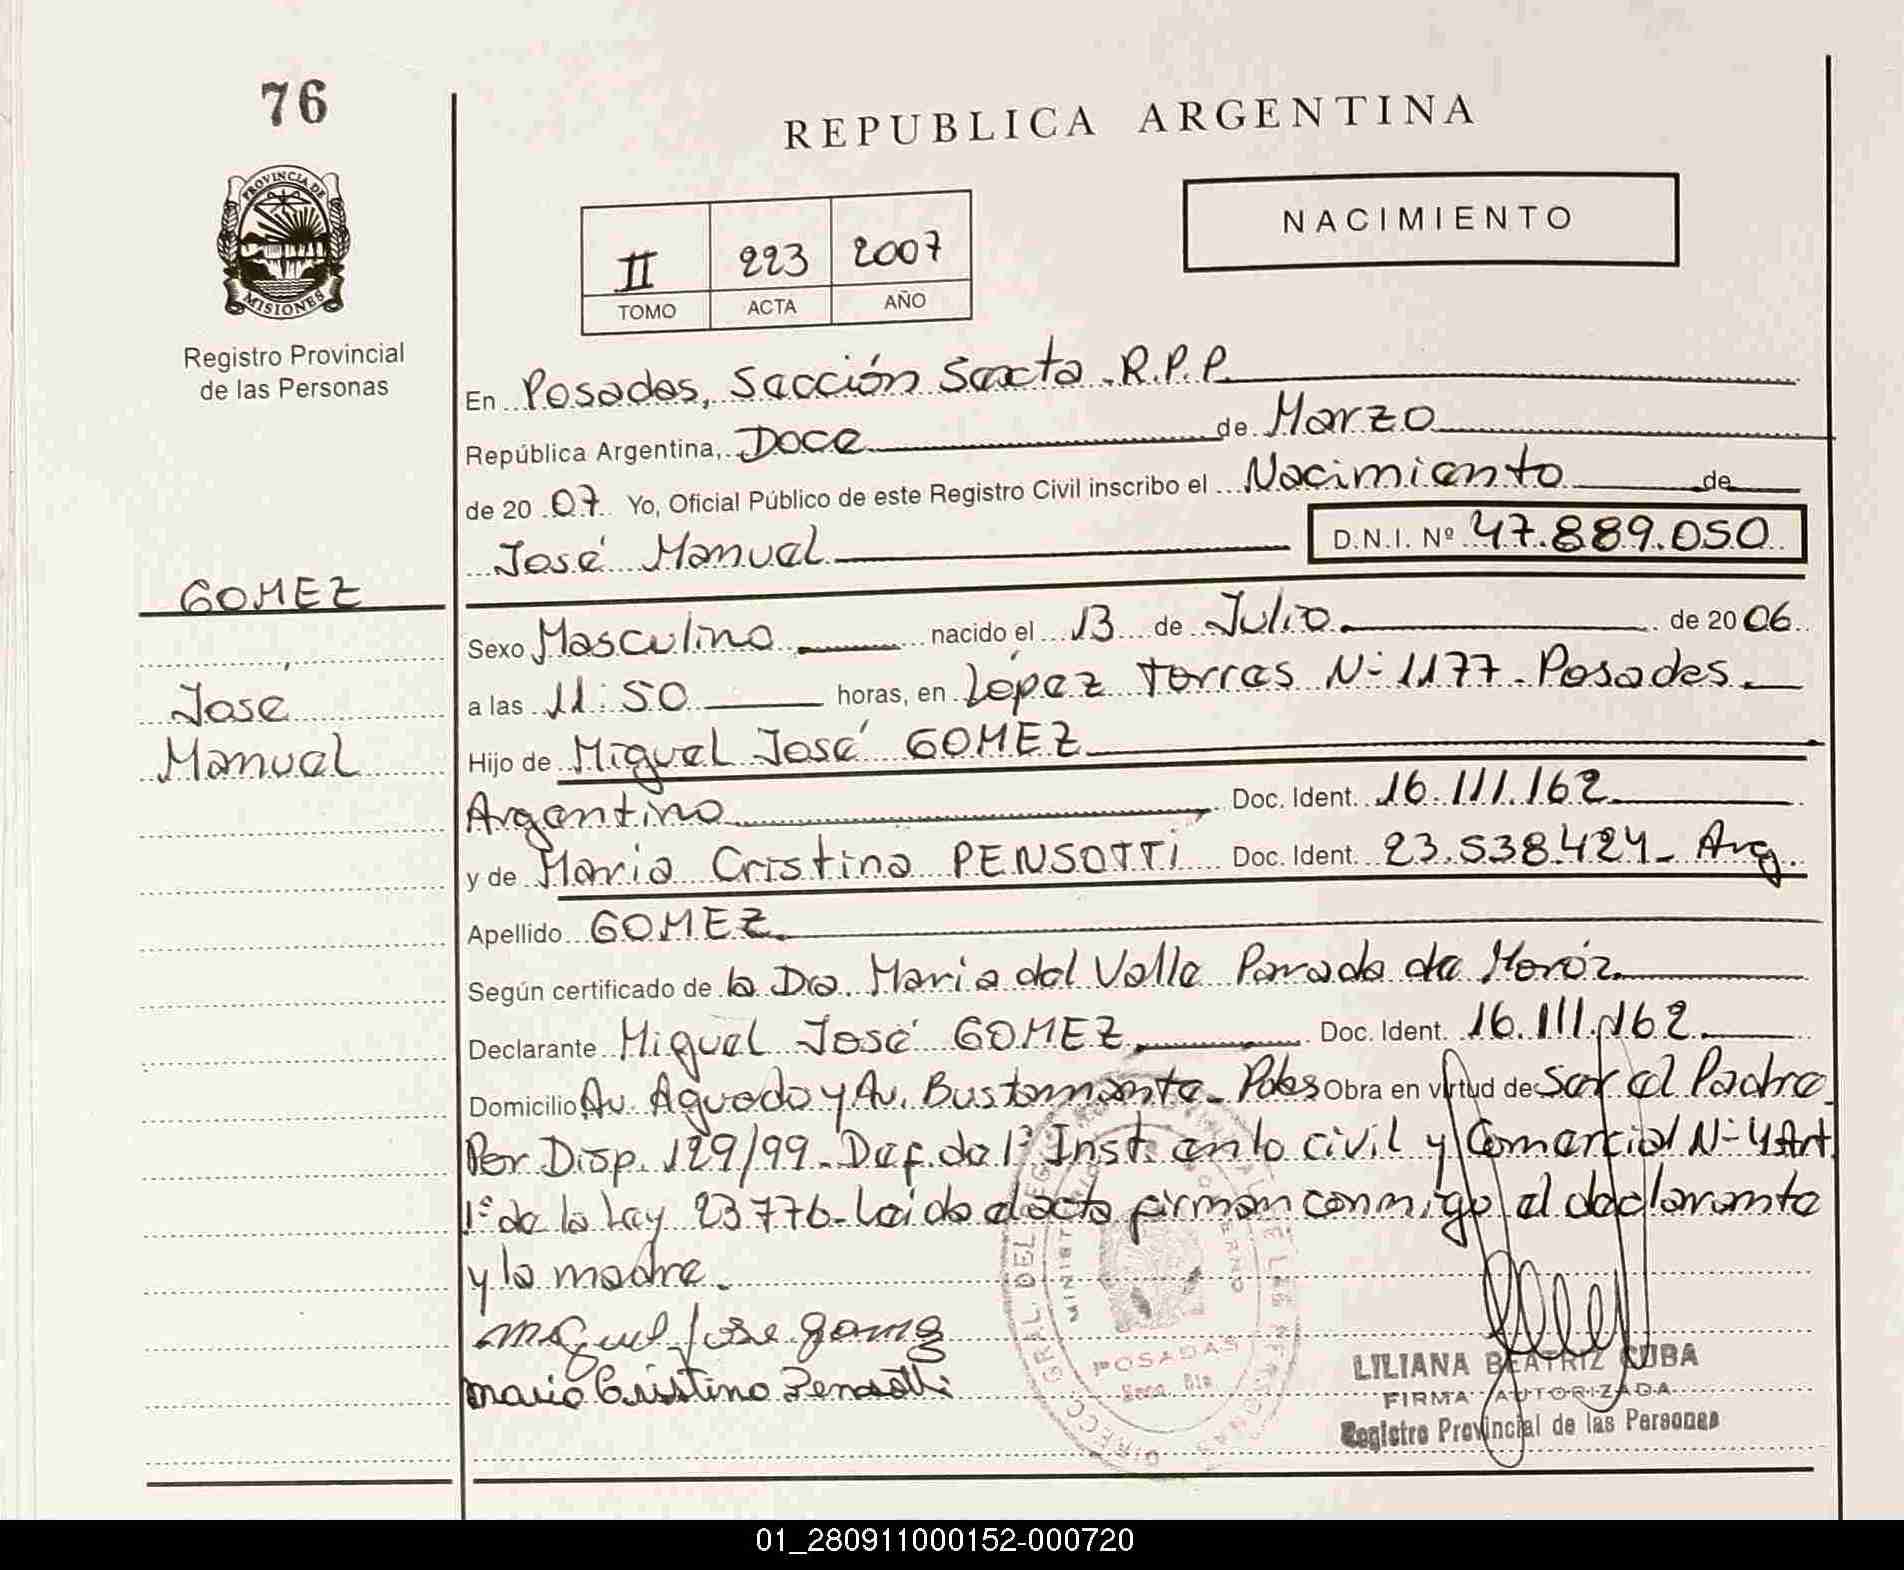 76
PROVINCIA DE
MISIONES
Registro Provincial
de las Personas
GOMEZ
José
Manuel
REPUBLICA ARGENTINA
II 223 2007
TOMO ACTA AÑO
NACIMIENTO
En Posadas, Sección Sexta R.P.P.
República Argentina, Doce de Marzo
de 20 07 Yo, Oficial Público de este Registro Civil inscribo el Nacimiento de
José Manuel D.N.I. Nº 47.889.050
Sexo Masculino nacido el 13 de Julio de 20 06
a las 11:50 horas, en López Torres Nº 1177 - Posadas
Hijo de Miguel José GOMEZ
Argentino Doc. Ident. 16.111.162
y de Maria Cristina PENSOTTI Doc. Ident. 23.538.424 - Arg.
Apellido GOMEZ
Según certificado de la Dra. Maria del Valle Parada de Moróz
Declarante Miguel José GOMEZ Doc. Ident. 16.111.162
Domicilio Av. Aguado y Av. Bustamante - Pdas Obra en virtud de Ser el Padre
Por Disp. 129/99 - Def. de 1ª Inst. en lo civil y Comercial Nº 4 Art.
1º de la Ley 23776 - Leida el acta firman conmigo el declarante
y la madre.
Miguel Jose Gomez
Maria Cristina Pensotti
POSADAS
LILIANA BEATRIZ CUBA
FIRMA AUTORIZADA
Registro Provincial de las Personas
01_280911000152-000720